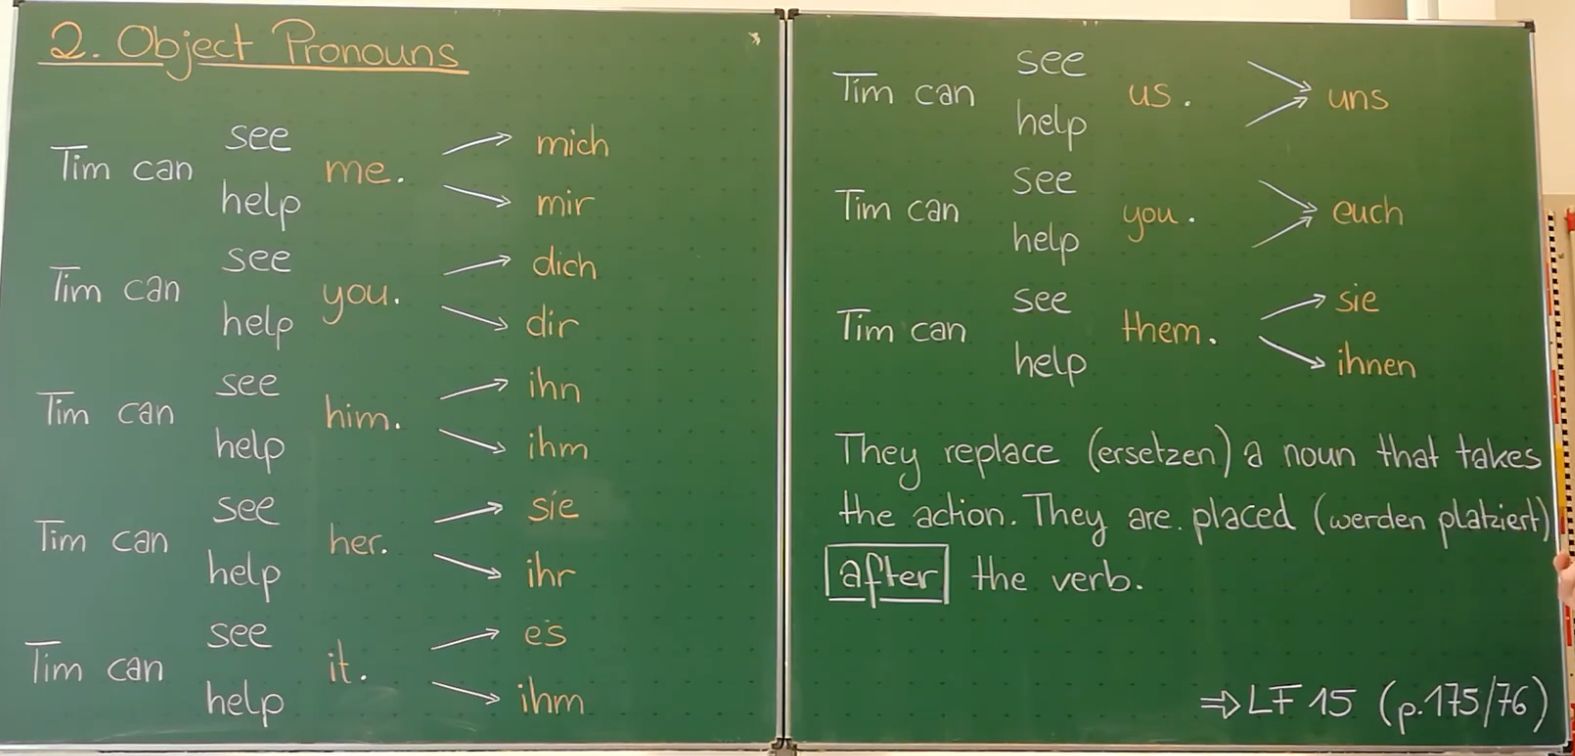 2. Object Pronouns
see mich
Tim can me.
help mir
see dich
Tim can you.
help dir
see ihn
Tim can him.
help ihm
see sie
Tim can her.
help ihr
see es
Tim can it.
help ihm
see
Tim can us. uns
help
see
Tim can you. euch
help
see sie
Tim can them.
help ihnen
They replace (ersetzen) a noun that takes
the action. They are placed (werden platziert)
after the verb.
⇒ LF 15 (p.175/76)